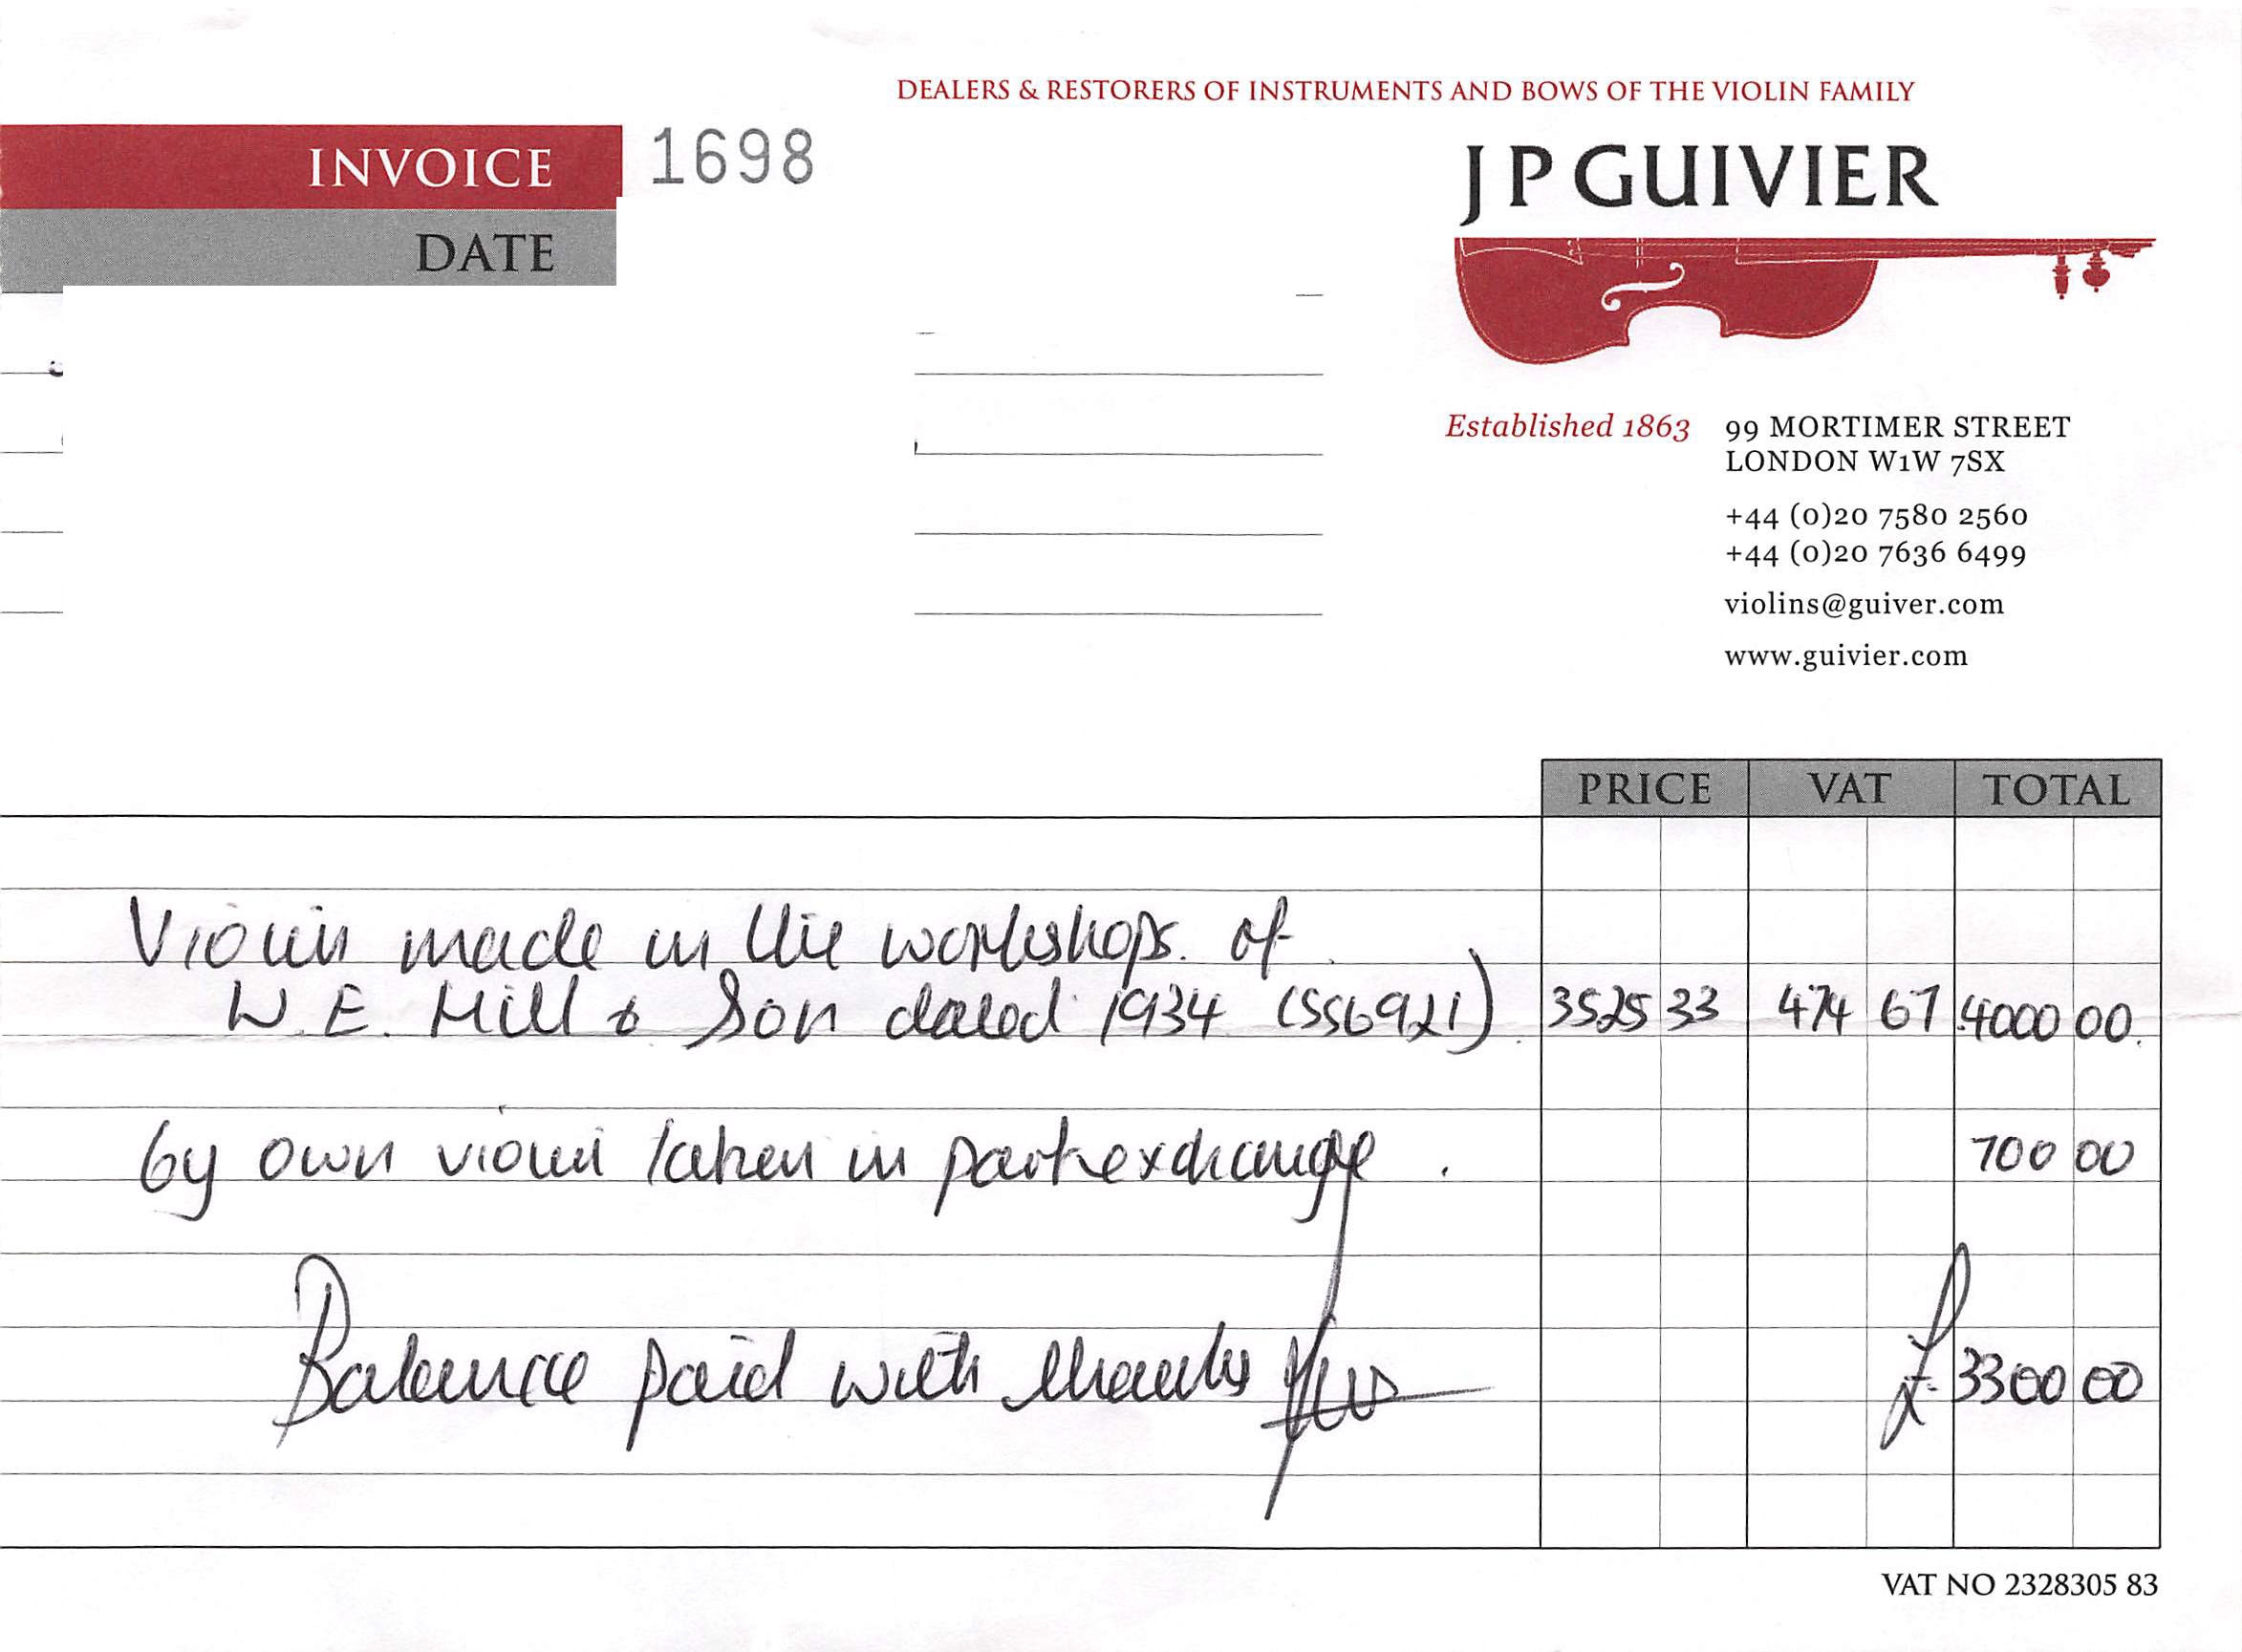 DEALERS & RESTORERS OF INSTRUMENTS AND BOWS OF THE VIOLIN FAMILY
INVOICE 1698
J P GUIVIER
DATE
Established 1863
99 MORTIMER STREET
LONDON W1W 7SX
+44 (0)20 7580 2560
+44 (0)20 7636 6499
violins@guiver.com
www.guivier.com
PRICE VAT TOTAL
Violin made in the workshops of
W. E. Hill & Son dated 1934 (SS6921). 3525 33 474 67 4000 00.
by own violin taken in part exchange. 700 00
Balance paid with thanks £3300 00
VAT NO 2328305 83